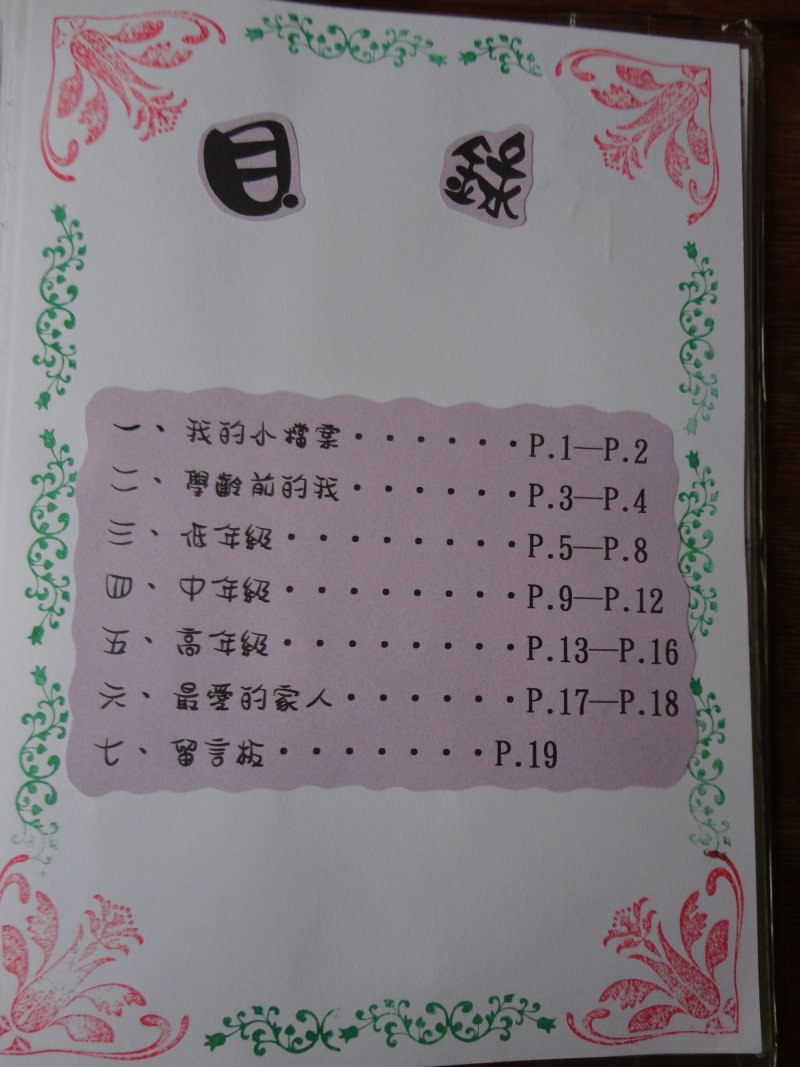 目 錄
一、我的小檔案······P.1—P.2
二、學齡前的我······P.3—P.4
三、低年級········P.5—P.8
四、中年級········P.9—P.12
五、高年級········P.13—P.16
六、最愛的家人······P.17—P.18
七、留言板·······P.19